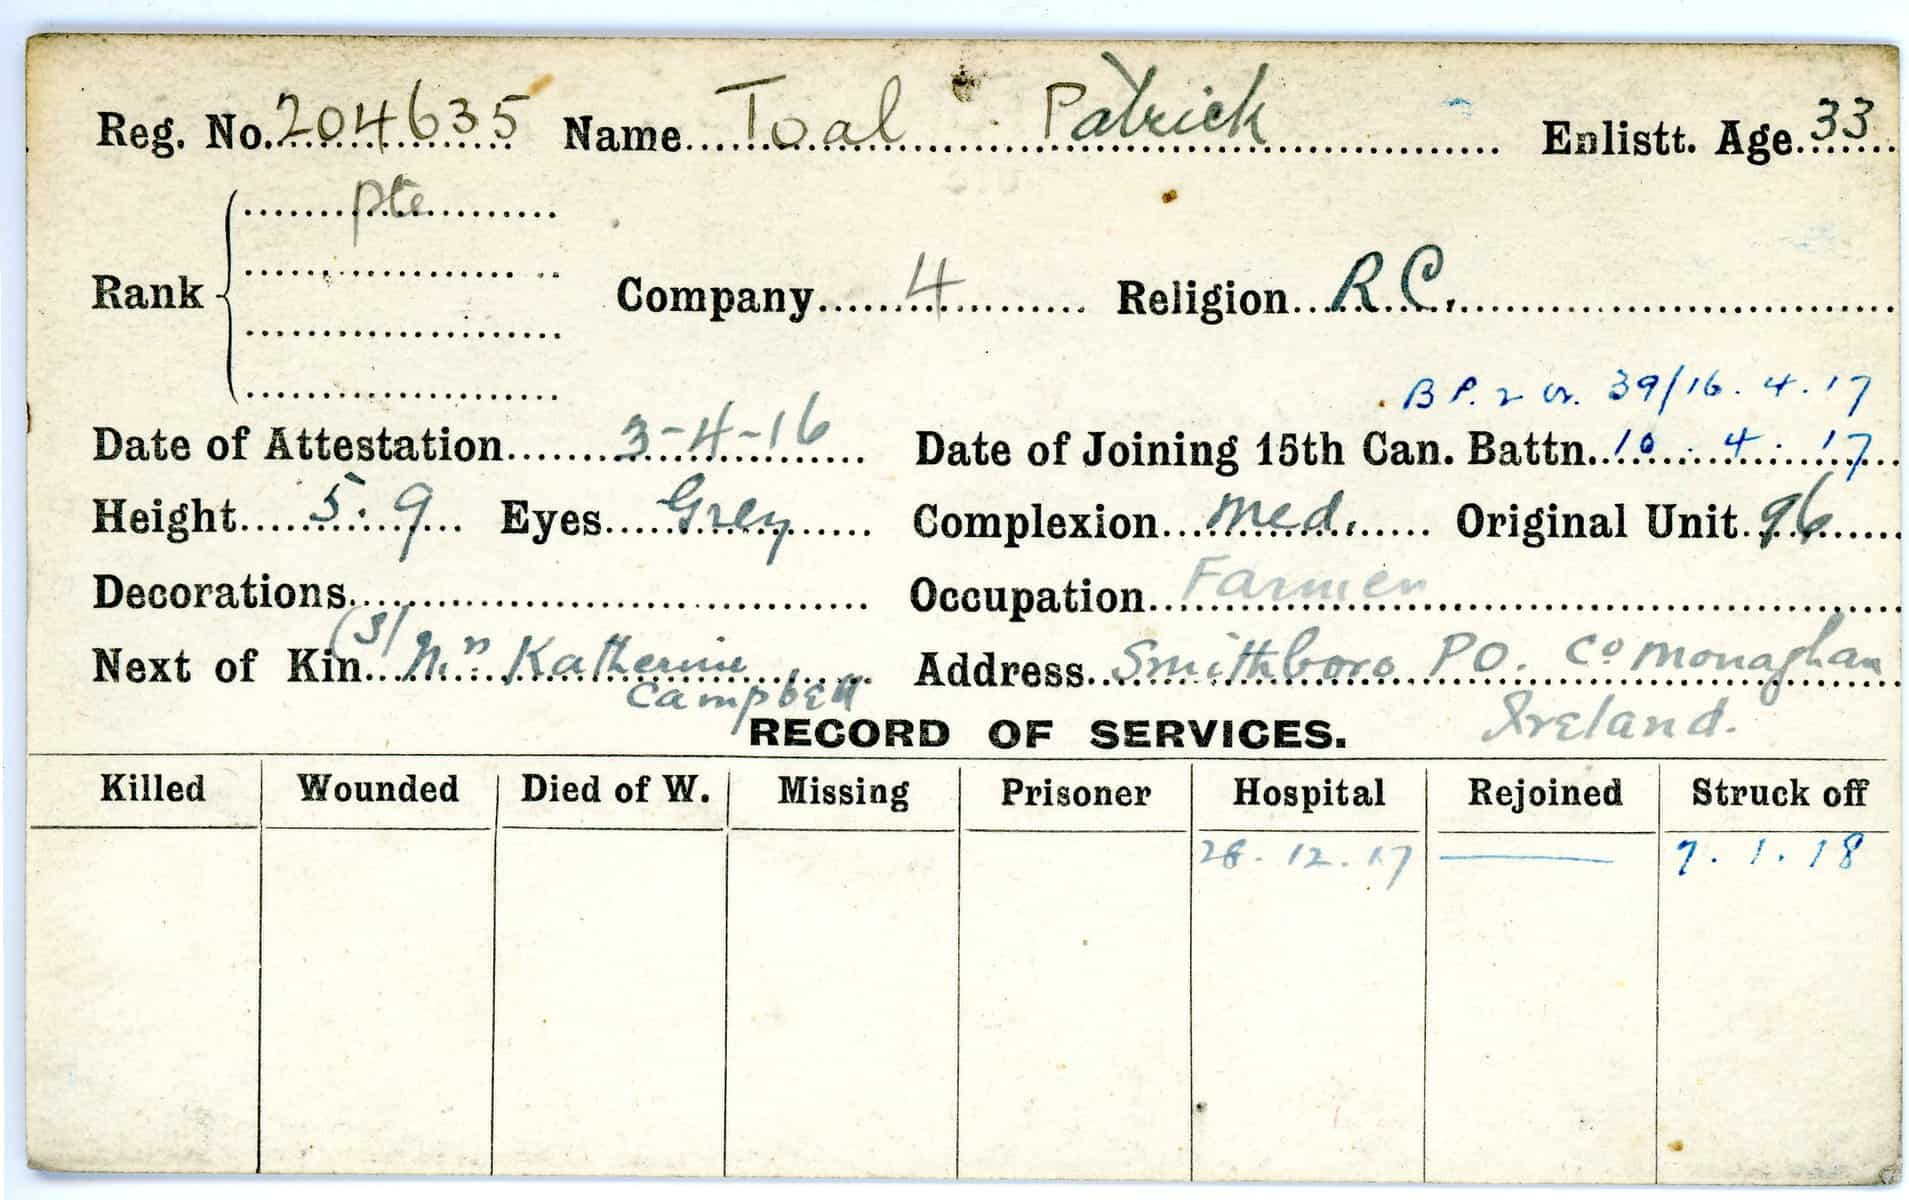 Reg. No. 204635 Name Toal Patrick Enlistt. Age 33
pte
Rank Company 4 Religion R.C.
B P. 2 Or. 39/16.4.17
Date of Attestation 3-4-16 Date of Joining 15th Can. Battn. 10.4.17
Height 5.9 Eyes Grey Complexion Med. Original Unit 96
Decorations Occupation Farmer
(S) Next of Kin Mrs Katherine Address Smithboro PO. Co Monaghan
Campbell Ireland.
RECORD OF SERVICES.
Killed Wounded Died of W. Missing Prisoner Hospital Rejoined Struck off
28.12.17 — 7.1.18